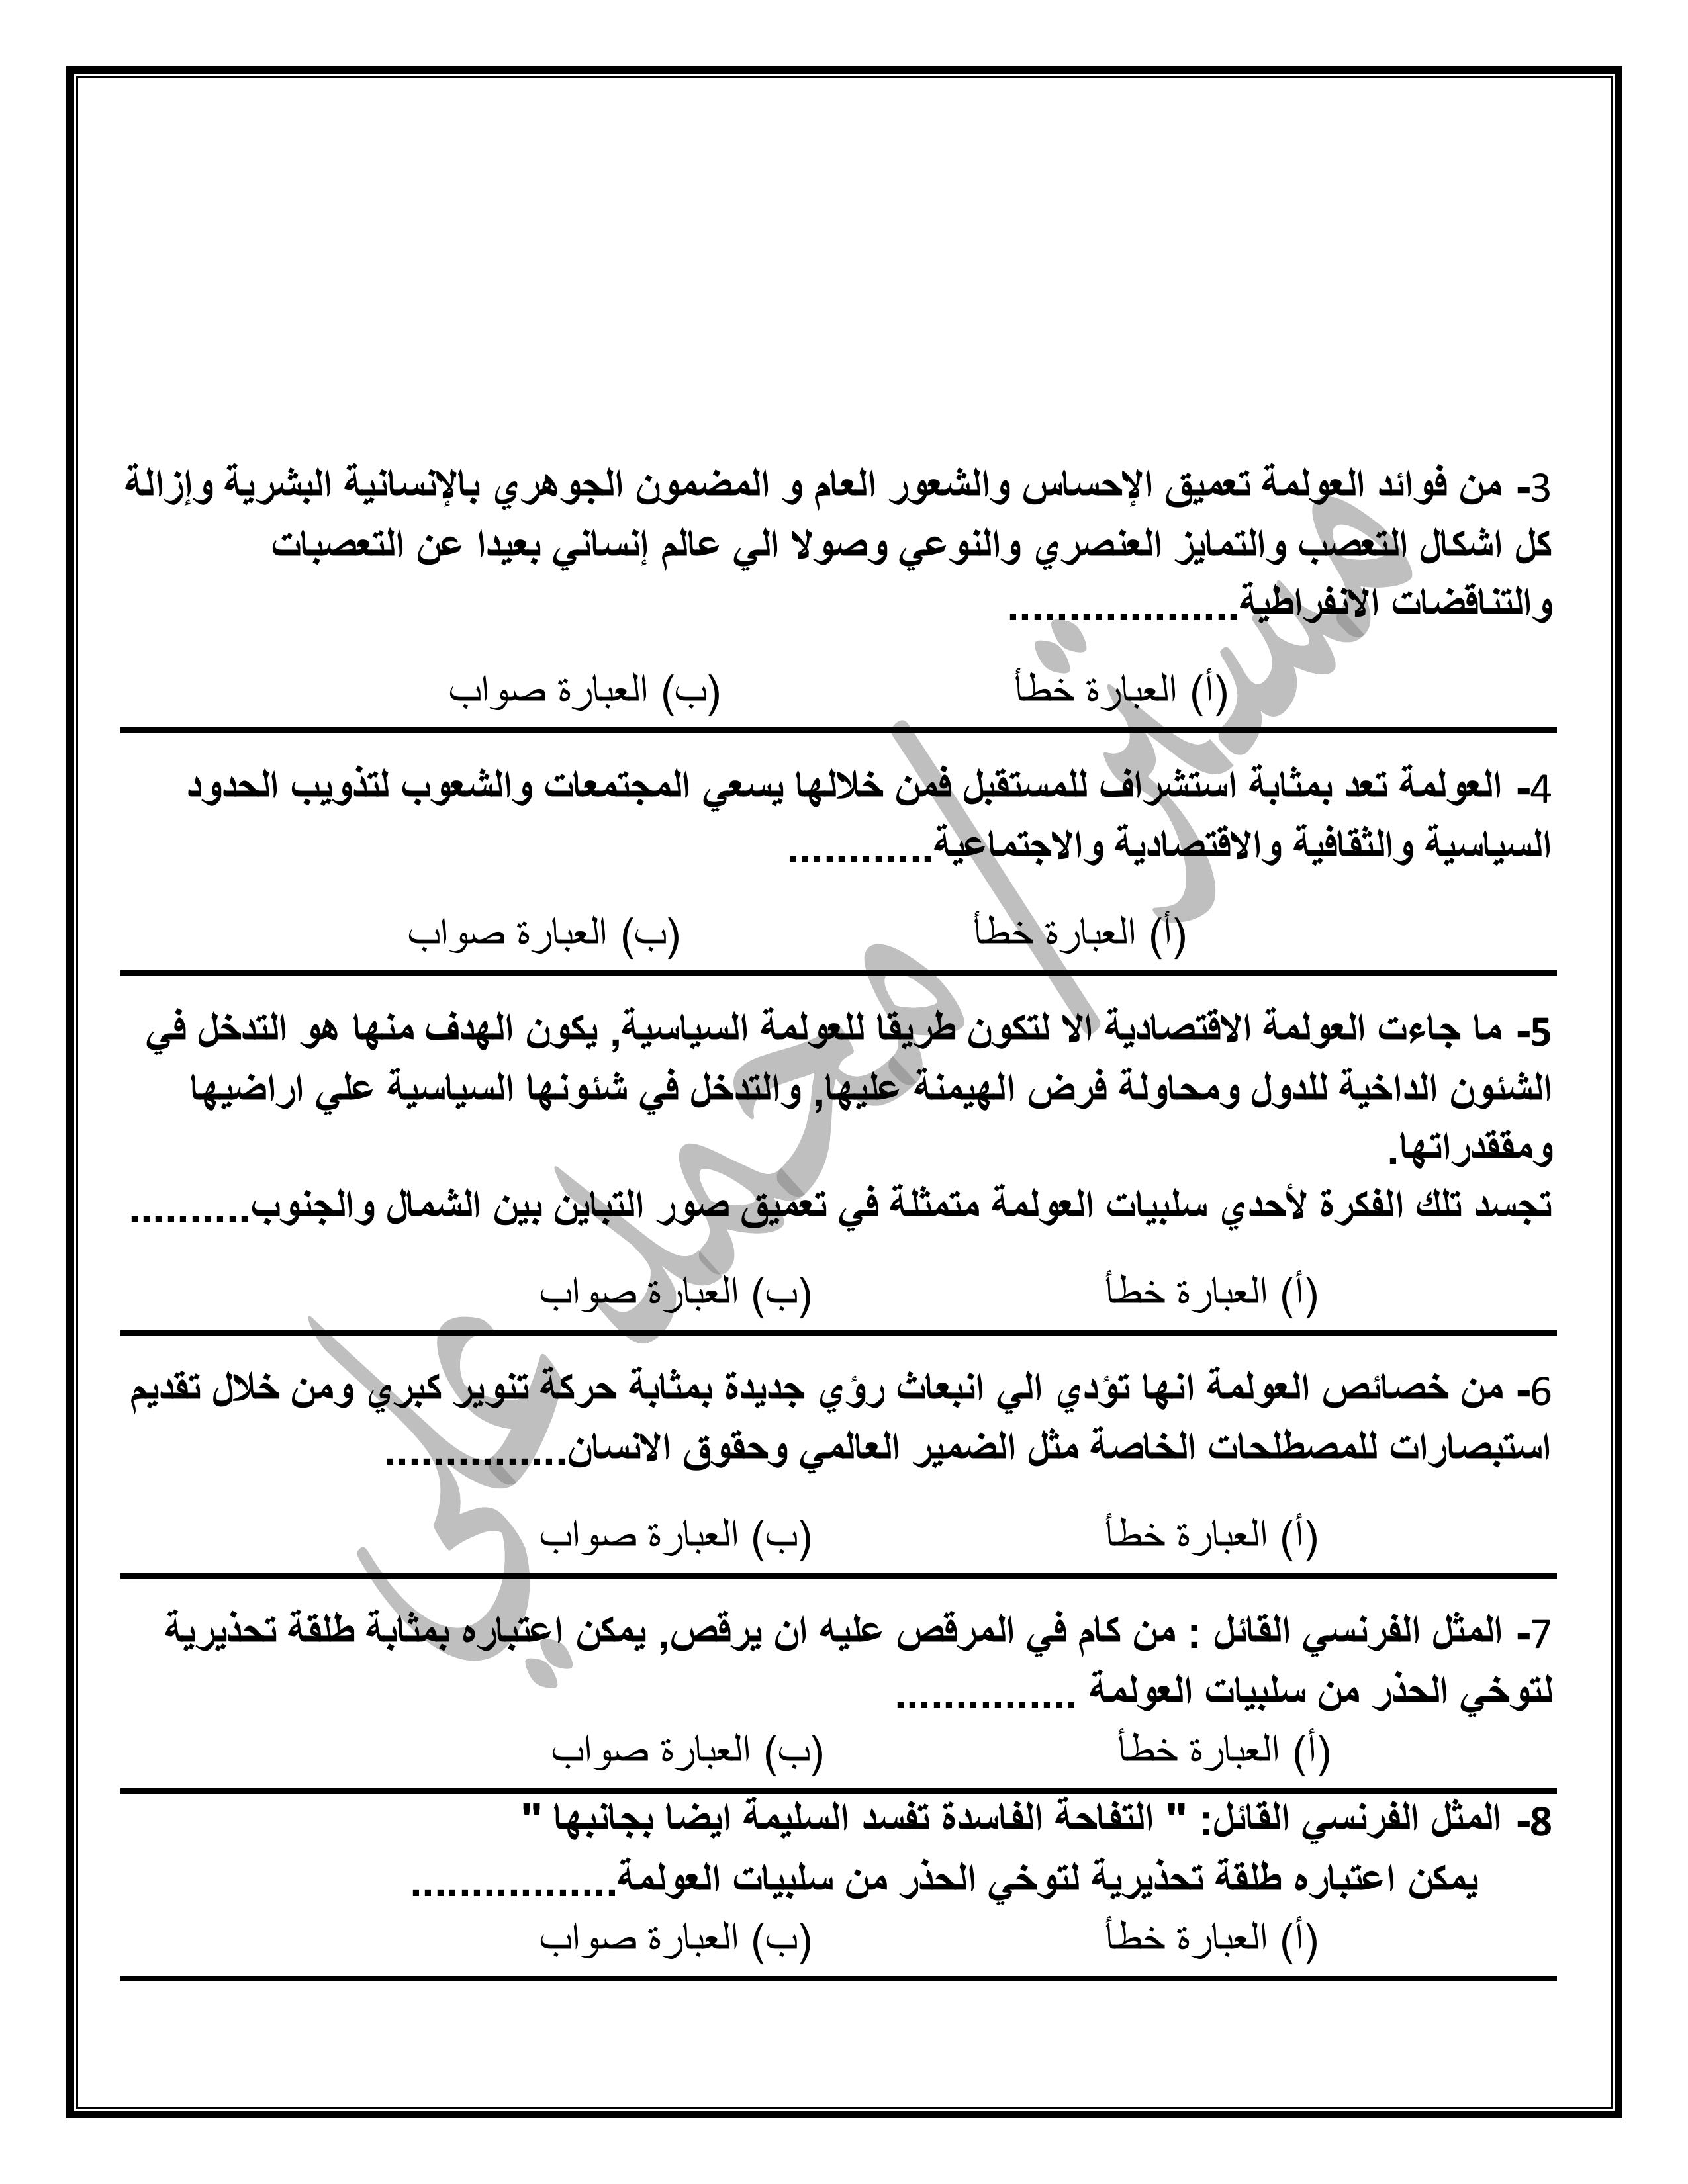 3- من فوائد العولمة تعميق الإحساس والشعور العام و المضمون الجوهري بالإنسانية البشرية وإزالة
كل اشكال التعصب والتمايز العنصري والنوعي وصولا الي عالم إنساني بعيدا عن التعصبات
والتناقضات الانفراطية...................
(أ) العبارة خطأ (ب) العبارة صواب
4- العولمة تعد بمثابة استشراف للمستقبل فمن خلالها يسعي المجتمعات والشعوب لتذويب الحدود
السياسية والثقافية والاقتصادية والاجتماعية............
(أ) العبارة خطأ (ب) العبارة صواب
5- ما جاءت العولمة الاقتصادية الا لتكون طريقا للعولمة السياسية, يكون الهدف منها هو التدخل في
الشئون الداخية للدول ومحاولة فرض الهيمنة عليها, والتدخل في شئونها السياسية علي اراضيها
ومققدراتها.
تجسد تلك الفكرة لأحدي سلبيات العولمة متمثلة في تعميق صور التباين بين الشمال والجنوب..........
(أ) العبارة خطأ (ب) العبارة صواب
6- من خصائص العولمة انها تؤدي الي انبعاث رؤي جديدة بمثابة حركة تنوير كبري ومن خلال تقديم
استبصارات للمصطلحات الخاصة مثل الضمير العالمي وحقوق الانسان...............
(أ) العبارة خطأ (ب) العبارة صواب
7- المثل الفرنسي القائل : من كام في المرقص عليه ان يرقص, يمكن اعتباره بمثابة طلقة تحذيرية
لتوخي الحذر من سلبيات العولمة ...............
(أ) العبارة خطأ (ب) العبارة صواب
8- المثل الفرنسي القائل: " التفاحة الفاسدة تفسد السليمة ايضا بجانبها "
يمكن اعتباره طلقة تحذيرية لتوخي الحذر من سلبيات العولمة.................
(أ) العبارة خطأ (ب) العبارة صواب
مستر/ محمد علي